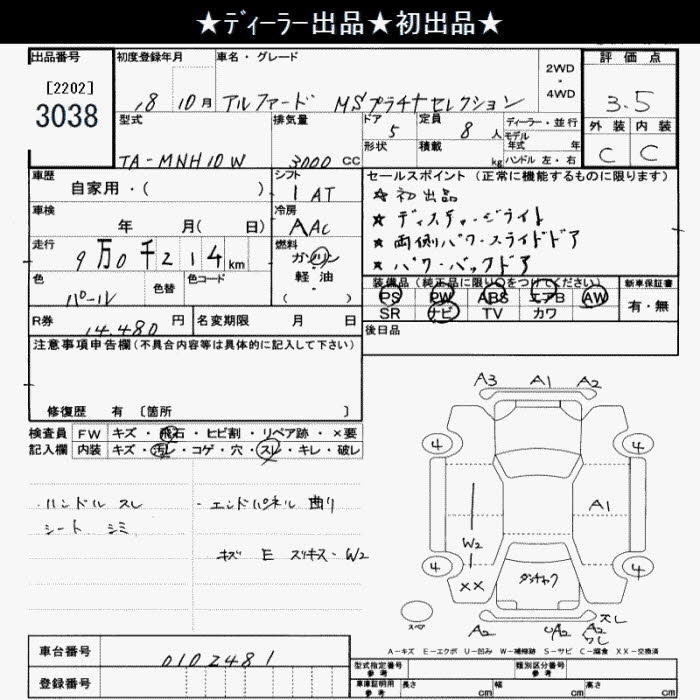 ★ディーラー出品★初出品★
出品番号
[2202]
3038
初度登録年月
18 10月
車名・グレード
アルファード MSプラチナセレクション
2WD
・
4WD
評価点
3.5
外装 内装
C C
型式
TA-MNH10W
排気量
3000 CC
ドア 5
形状
定員 8 人
積載 kg
ディーラー・並行
モデル
年式 年
ハンドル 左・右
車歴
自家用・( )
シフト
1 AT
車検
年 月( 日)
冷房
AAC
走行
9万0千214 km
燃料
ガソリン
軽・油
( )
色
パール
色替
色コード
セールスポイント (正常に機能するものに限ります)
★ 初出品
★ ディスチャージライト
★ 両側パワースライドドア
★ パワーバックドア
装備品(純正品に限り○をつけてください)
PS PW ABS エアB AW
SR ナビ TV カワ
新車保証書
有・無
R券 14,480 円
名変期限 月 日
後日品
注意事項申告欄(不具合内容等は具体的に記入して下さい)
修復歴 有 〔箇所 〕
検査員 FW キズ・飛石・ヒビ割・リペア跡・×要
記入欄 内装 キズ・汚レ・コゲ・穴・スレ・キレ・破レ
・ハンドル スレ
シート シミ
・エンドパネル 曲り
キズ E スリキズ・W2
A3 A1 A2
4 4
A1
W2
4 4
XX
ダンチャク
スペア
A2 UA2 A2 スレ
ワレ
A-キズ E-エクボ U-凹み W-補修跡 S-サビ C-腐食 XX-交換済
車台番号 0102481
登録番号
型式指定番号 類別区分番号
車庫証明用
参考 長さ cm 幅 cm 高さ cm